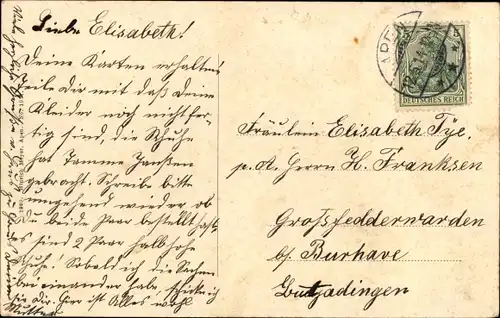 Liebe Elisabeth!
Deine Karten erhalten
teile Dir mit daß deine
Kleider noch nicht fer-
tig sind, die Schuhe
hat Tamme Janßen
gebracht. Schreibe bitte
umgehend wieder ob
du beide Paar bestellt hast
es sind 2 Paar halbhohe
Schuhe! Sobald ich die Sachen
bei einander habe, schicke ich
sie Dir. Hier ist Alles wohl
Mutter
APEN
DEUTSCHES REICH
Fräulein Elisabeth Tye.
p. A. Herrn H. Franksen
Großfedderwarden
b/ Burhave
Butjadingen